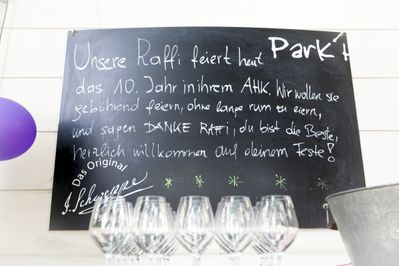 Unsere Raffi feiert heut
Park
das 10. Jahr in ihrem AHK. Wir wollen sie
gebührend feiern, ohne lange rum zu eiern,
und sagen DANKE Raffi, du bist die Beste,
herzlich willkommen auf deinem Feste!
Das Original
J. Schweppe